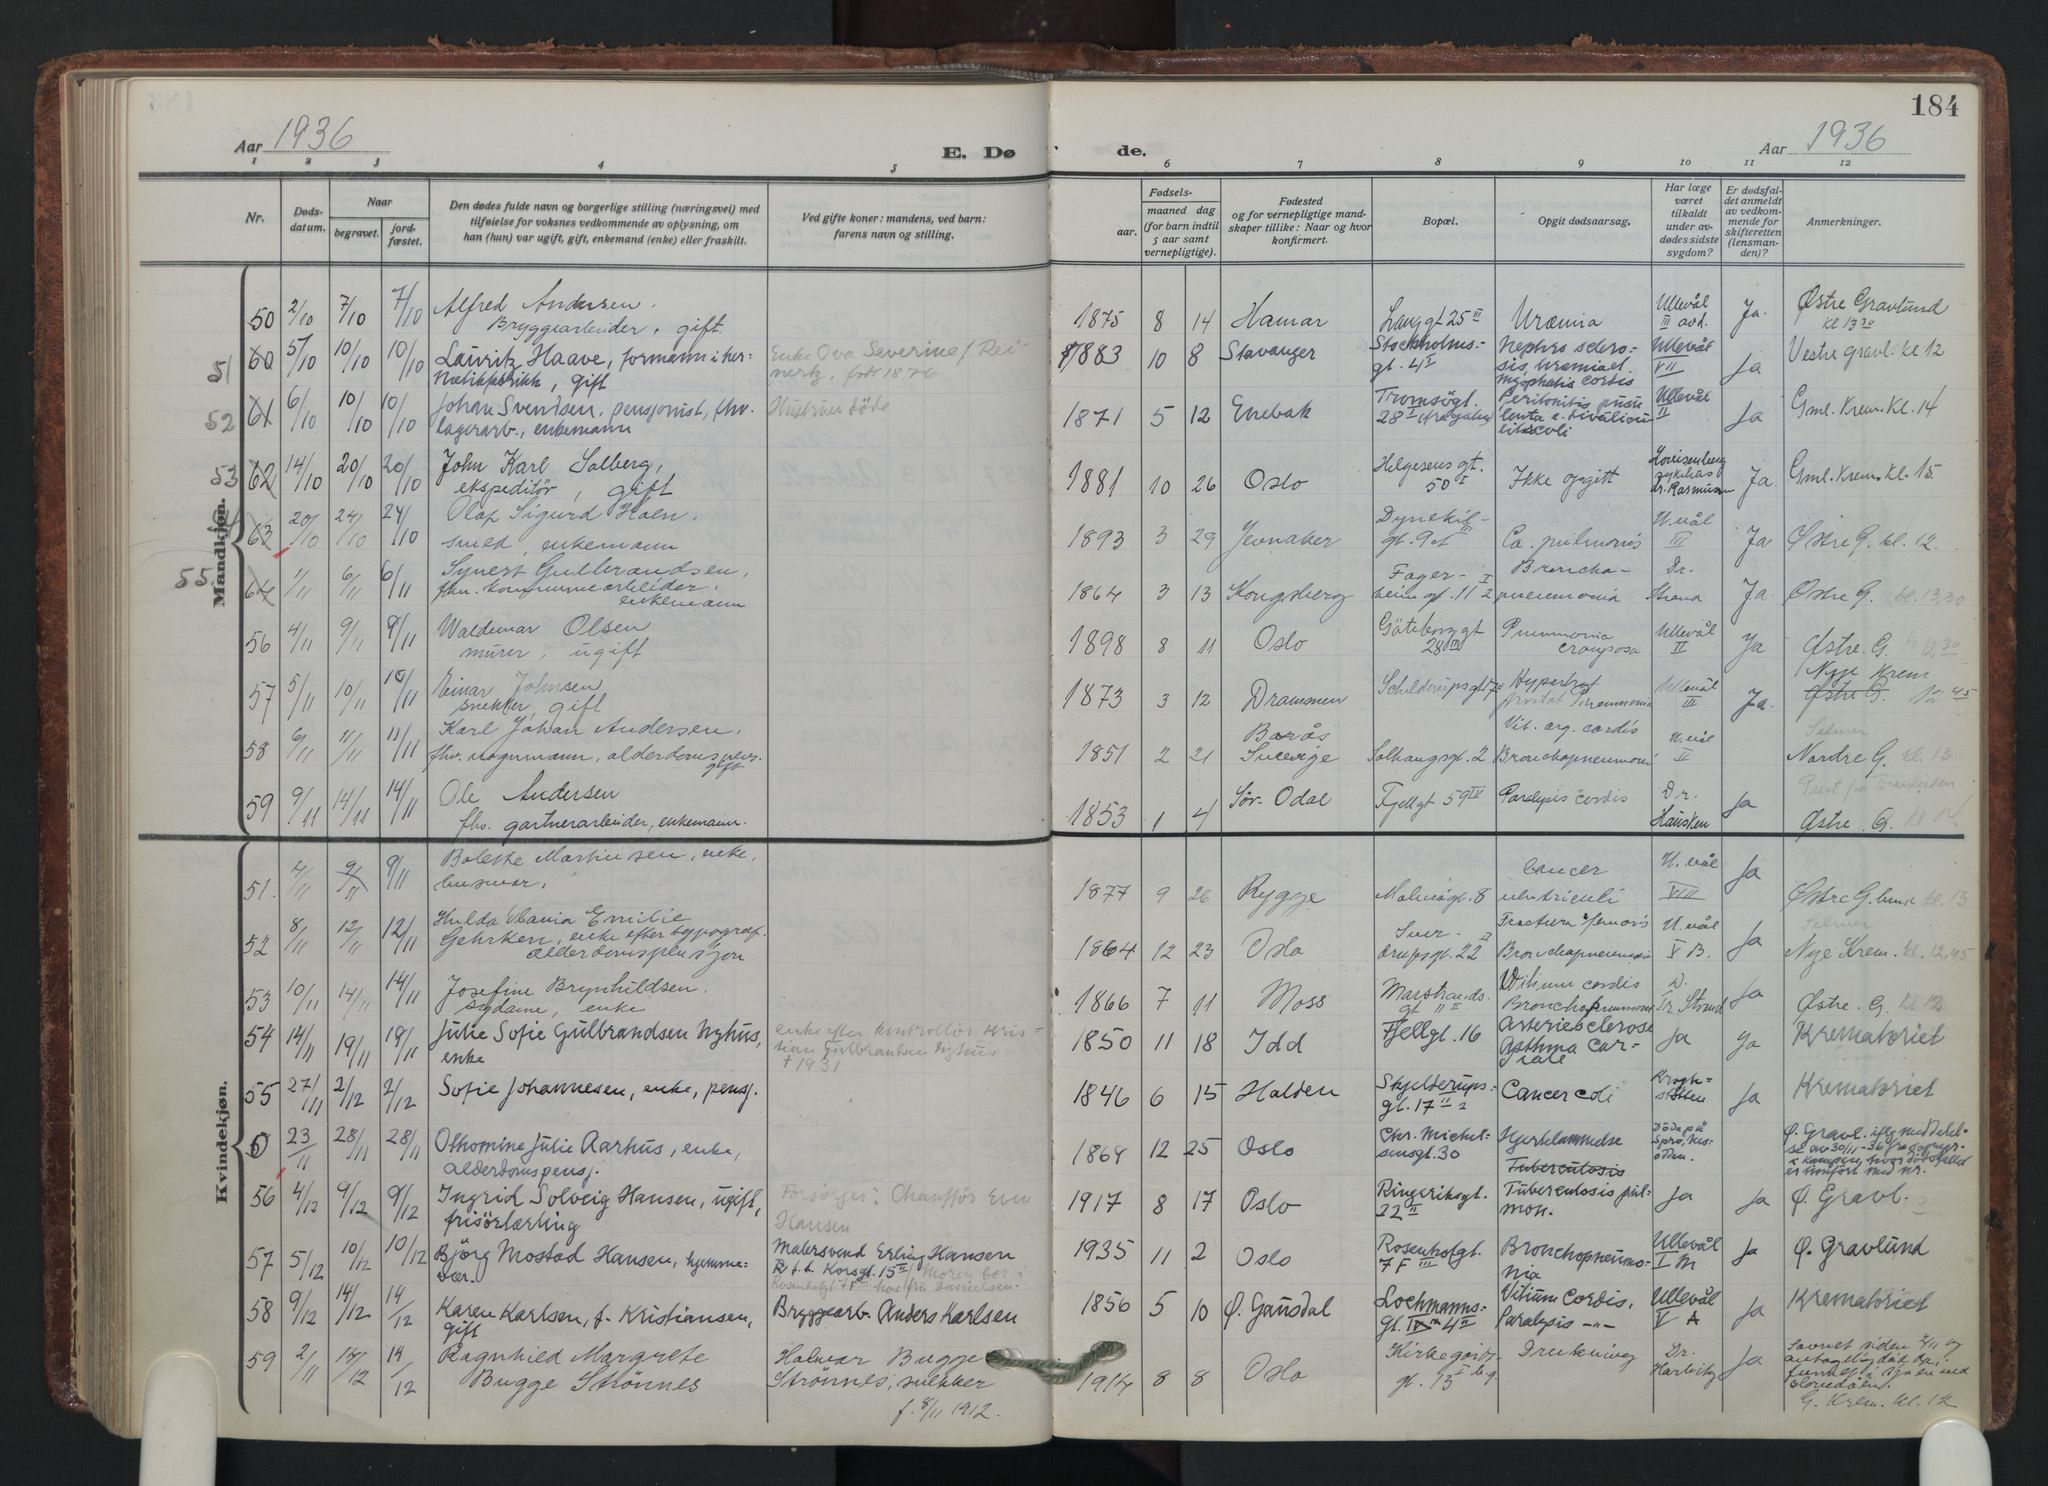 184
Aar 1936
E. Dø
de.
Aar 1936
1 2 3 4 5 6 7 8 9 10 11 12
Nr.
Døds-
datum.
Naar
begravet.
jord-
fæstet.
Den dødes fulde navn og borgerlige stilling (næringsvei) med
tilføielse for voksnes vedkommende av oplysning, om
han (hun) var ugift, gift, enkemand (enke) eller fraskilt.
Ved gifte koner: mandens, ved barn:
farens navn og stilling.
Fødsels-
aar.
maaned dag
(for barn indtil
5 aar samt
vernepligtige).
Fødested
og for vernepligtige mand-
skaper tillike: Naar og hvor
konfirmert.
Bopæl.
Opgit dødsaarsag.
Har læge
været
tilkaldt
under av-
dødes sidste
sygdom?
Er dødsfal-
det anmeldt
av vedkom-
mende for
skifteretten
(lensman-
den)?
Anmerkninger.
Mandkjøn.
50 2/10 7/10 7/10 Alfred Andersen.
Bryggearbeider, gift.
1875 8 14 Hamar Langgt 25 III Uræmia Ullevål III avd. Ja. Østre Gravlund
kl 13 30
51 60 5/10 10/10 10/10 Lauritz Haave, formann i her-
metikkfabrikk, gift
Enke Ova Severine f. Rei-
nertz, født 1876
1883 10 8 Stavanger Stockholms-
gt. 4 I Nephro sclero-
sis, Uræmia et
myopathia cordis Ullevål VII Ja Vestre gravl. kl 12
52 61 6/10 10/10 10/10 Johan Svendsen, pensjonist, fhv.
lagerarb., enkemann
Hustruen døde
1871 5 12 Enebak Tromsögt.
28 I Peritonitis puru
lenta Ullevål II Ja Gml. Krem. kl. 14
53 62 14/10 20/10 20/10 John Karl Solberg,
ekspeditör, gift
1881 10 26 Oslo Helgesens gt.
50 I Ikke opgitt Lovisenberg
sykehus
dr. Rasmussen Ja. Gml. Krem. kl. 15.
63 20/10 24/10 24/10 Olaf Sigurd Hoen.
smed, enkemann
1893 3 29 Jevnaker Dynekil-
gt. 9 III Ca. pulmonis U.vål III Ja Østre G. kl. 12.
55 64 1/11 6/11 6/11 Synert Gulbrandsen,
fhv. kommunearbeider.
enkemann
1864 3 13 Kongsberg Fager-
heimgt. 11 I 2 Broncho-
pneumonia Dr.
Strand Ja. Østre G. kl. 13,30
56 4/11 9/11 9/11 Waldemar Olsen
murer, ugift
1898 8 11 Oslo Göteborggt
28 III Pneumonia
crouposa Ullevål II Ja Østre. G. kl 12,30
57 5/11 10/11 10/11 Einar Johnsen
snekker, gift
1873 3 12 Drammen Schilderupsgt 7 Hypertrof.
prostat Pneumonia Ullevål III Ja. Nye Krem
Østre G. 12 45
58 6/11 11/11 11/11 Karl Johan Andersen.
fhv. vognmann, alderdomspens.
gift
1851 2 21 Borås
Sverige Solhaugsgt. 2 Vit. org. cordis
Bronchopneumoni U.vål II Selmer
Nordre G. kl. 13
59 9/11 14/11 14/11 Ole Andersen
fhv. gartnerarbeider, enkemann.
1853 1 4 Sör-Odal Fjellgt 59 IV Paralysis cordis Dr.
Hansken Ja Prest fra
Østre G. kl 14
Kvindekjøn.
51. 4/11 9/11 9/11 Bolette Martinsen, enke.
husmor.
1877 9 26 Rygge Malmögt. 8 Cancer
ventriculi U.vål VIII Ja Østre G. kl. 13
52 8/11 12/11 12/11 Hulda Maria Emilie
Gehrken, enke efter typograf.
alderdomspensjon
1864 12 23 Oslo Sver-
drupsgt. 22 II Fractura femoris
Bronchopneumoni U.vål
V B. Ja Selmer
Nye Krem. kl. 12,45
53 10/11 14/11 14/11 Josefine Brynhildsen.
sydame, enke
1866 7 11 Moss Marstrands.
gt 11 II Vitium cordis
Bronchopneumoni D.
Tr. Strand Ja Østre. G. kl 12
54 14/11 19/11 19/11 Julie Sofie Gulbrandsen Nyhus,
enke
enke efter kontrollör Kris-
tian Gulbrandsen Nyhus
† 1931
1850 11 18 Idd Fjellgt. 16 Arteriesclerose
Asthma car-
diale Ja Ja Krematoriet
55 27/11 2/12 2/12 Sofie Johannesen, enke, pensj.
1846 6 15 Halden Skjelderups-
gt. 17 II 2 Cancer coli Krogh-
støtten Ja Krematoriet
0 23/11 28/11 28/11 Othomine Julie Aarhus, enke,
alderdomspensj.
1869 12 25 Oslo Chr. Michel-
sensgt. 30 Hjertelammelse
Tuberculosis Døde på Ø. Gravl. iflg. meddelel-
se av 30/11-36 fra
i Kampen, hvor dödsfallet
er innført med nr.
56 4/12 9/12 9/12 Ingrid Solveig Hansen, ugift,
frisörlærling
Forsörger: Chauffør
Hansen
1917 8 17 Oslo Ringeriksgt.
22 II Tuberculosis pul-
mon. Ja Ja Ø. Gravl.
57 5/12 10/12 10/12 Björg Mostad Hansen, hjemme-
vær.
Malersvend Erling Hansen
Korsgt. 15 II / Moren bor i
Rosenhofgt 7 F III hos fru Danielsen.
1935 11 2 Oslo Rosenhofgt.
7 F III Bronchopneumo-
nia Ullevål
I M Ja Ø. Gravlund
58 9/12 14/12 14/12 Karen Karlsen, f. Kristiansen,
gift
Bryggearb. Anders Karlsen
1856 5 10 Ø. Gausdal Lochmanns-
gt. 4 II Vitium Cordis,
Paralysis -"- Ullevål
V A Ja Krematoriet
59 2/11 14/12 14/12 Ragnhild Margrete
Bugge Strönnes
Halvar Bugge
Strönnes, snekker
f. 8/11 1912.
1914 8 8 Oslo Kirkegårds
gt. 13 I b.g. Drukning Dr.
Harbitz Ja Savnet siden 2/11 og
antagelig død da.
funnet i sjøen ved
G. Krem. kl. 12